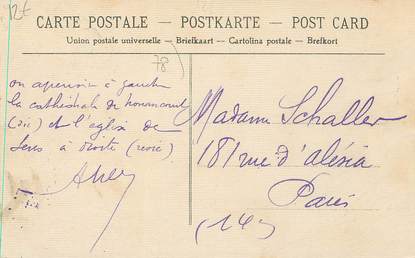 12€
CARTE POSTALE – POSTKARTE – POST CARD
Union postale universelle – Briefkaart – Cartolina postale – Brefkort
78
on aperçoit à gauche
la cathédrale de
(sic) et l'église de
Sens à droite (sic)
Madame Schaller
181 rue d'alésia
Paris
(14e)